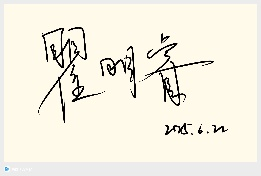 瞿明睿
2025.6.22